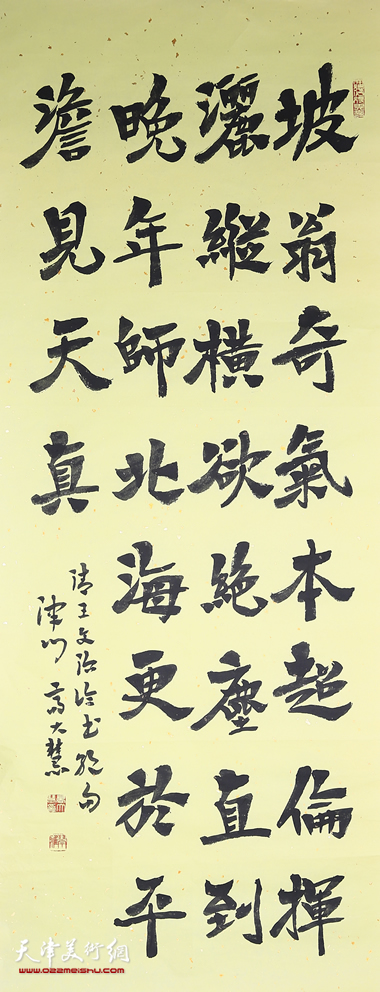 坡翁奇氣本超倫揮
灑縱橫欲絕塵直到
晚年師北海更於平
澹見天真
清王文治論書絕句
津門 高大慧
天津美術網
www.022meishu.com